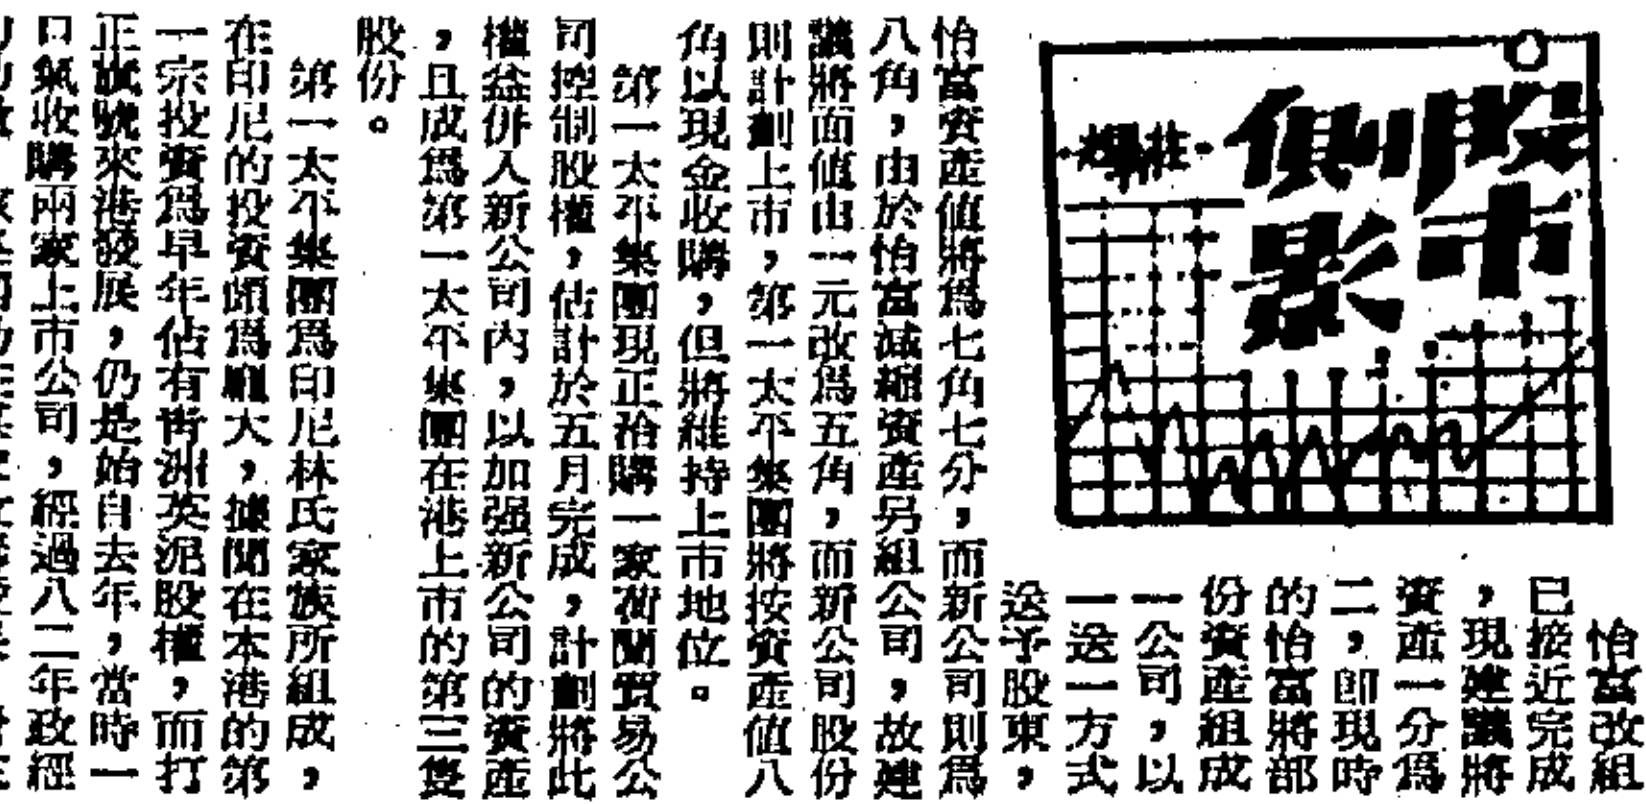 股市
側影
怡富改組
已接近完成
，現建議將
資產一分爲
二，卽現時
的怡富將部
份資產組成
一公司，以
一送一方式
送予股東，
怡富資產值將爲七角七分，而新公司則爲
八角，由於怡富減縮資產另組公司，故建
議將面值由一元改爲五角，而新公司股份
則計劃上市，第一太平集團將按資產值八
角以現金收購，但將維持上市地位。
第一太平集團現正洽購一家荷蘭貿易公
司控制股權，估計於五月完成，計劃將此
權益併入新公司內，以加强新公司的資產
，且成爲第一太平集團在港上市的第三隻
股份。
第一太平集團爲印尼林氏家族所組成，
在印尼的投資頗爲龐大，據聞在本港的第
一宗投資爲早年佔有靑洲英泥股權，而打
正旗號來港發展，仍是始自去年，當時一
口氣收購兩家上市公司，經過八二年政經